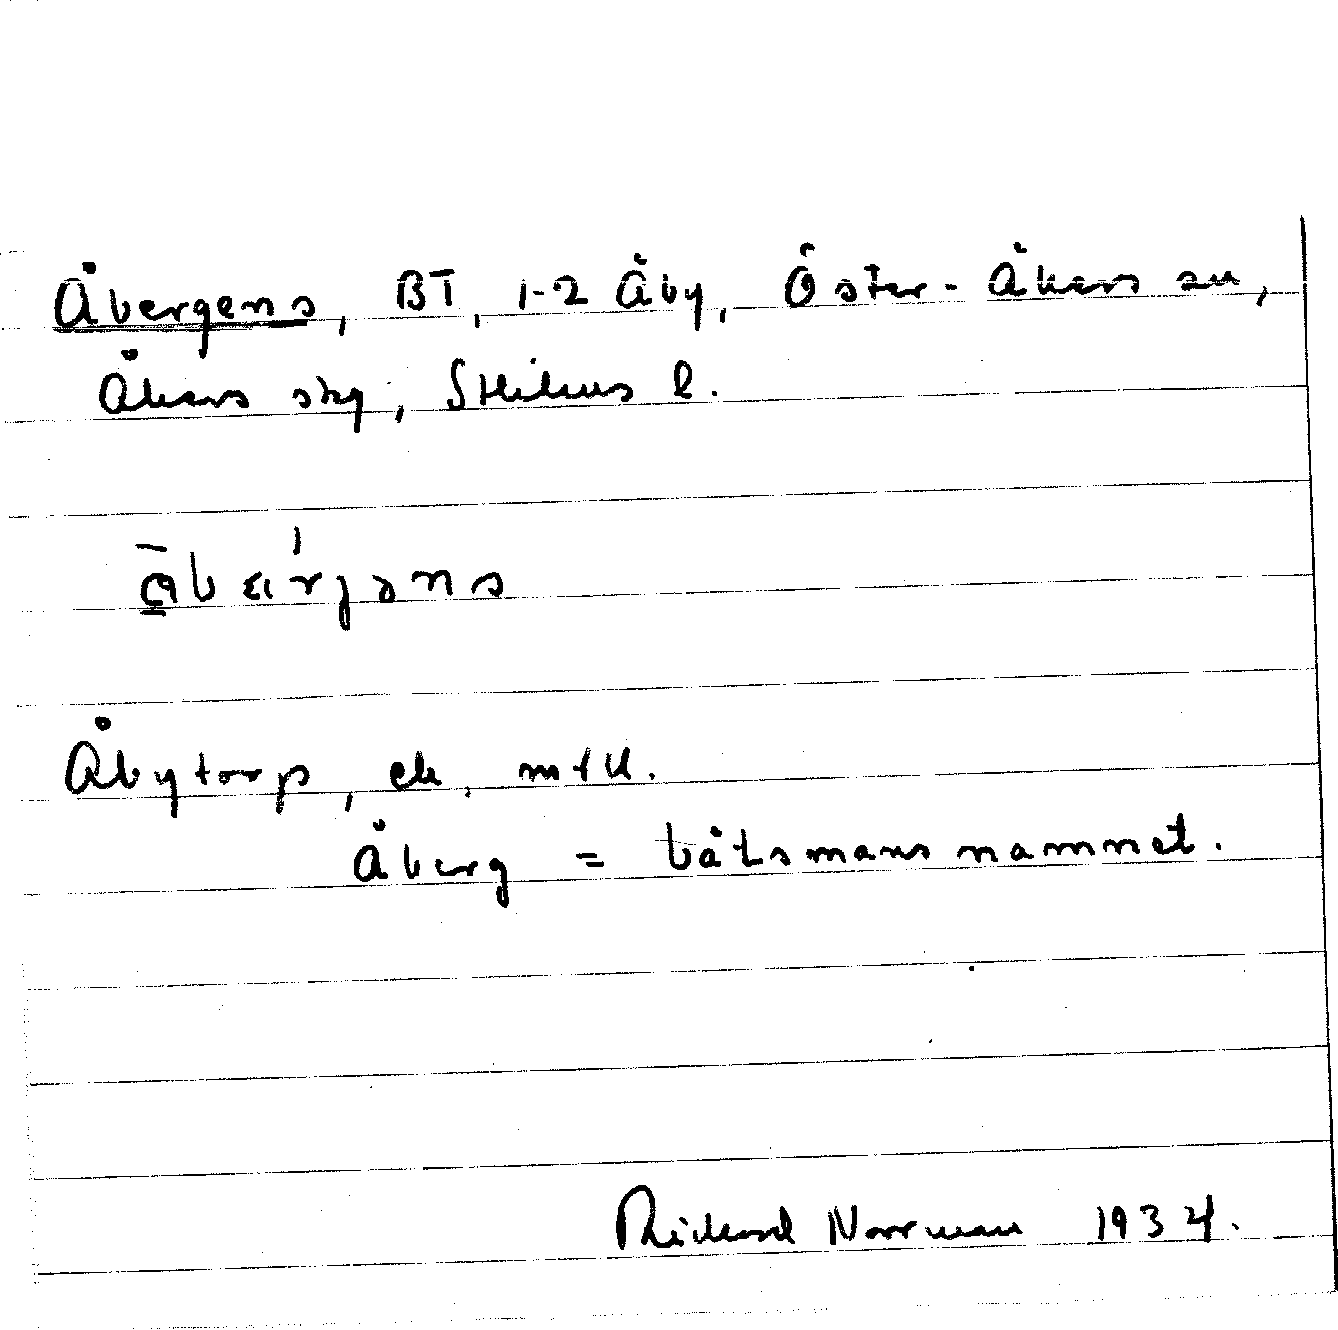 Åbergens, BT, 1-2 Åby, Öster-Åkers sn,
Åkers skg, Sthlms l.
Åbytorp, ek,
Åberg = båtsmansnamnet.
Rickard Norrman 1934.